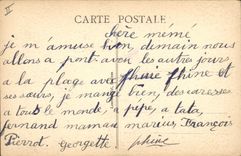 II
CARTE POSTALE
chère mémé
je m'amuse bien, demain nous
allons a pont-aven les autres jours
a la plage avec phine et
ses sœurs, je mange bien, des caresses
a tout le monde, a pépé, a tata,
fernand maman marius, François
Pierrot. Georgette phine